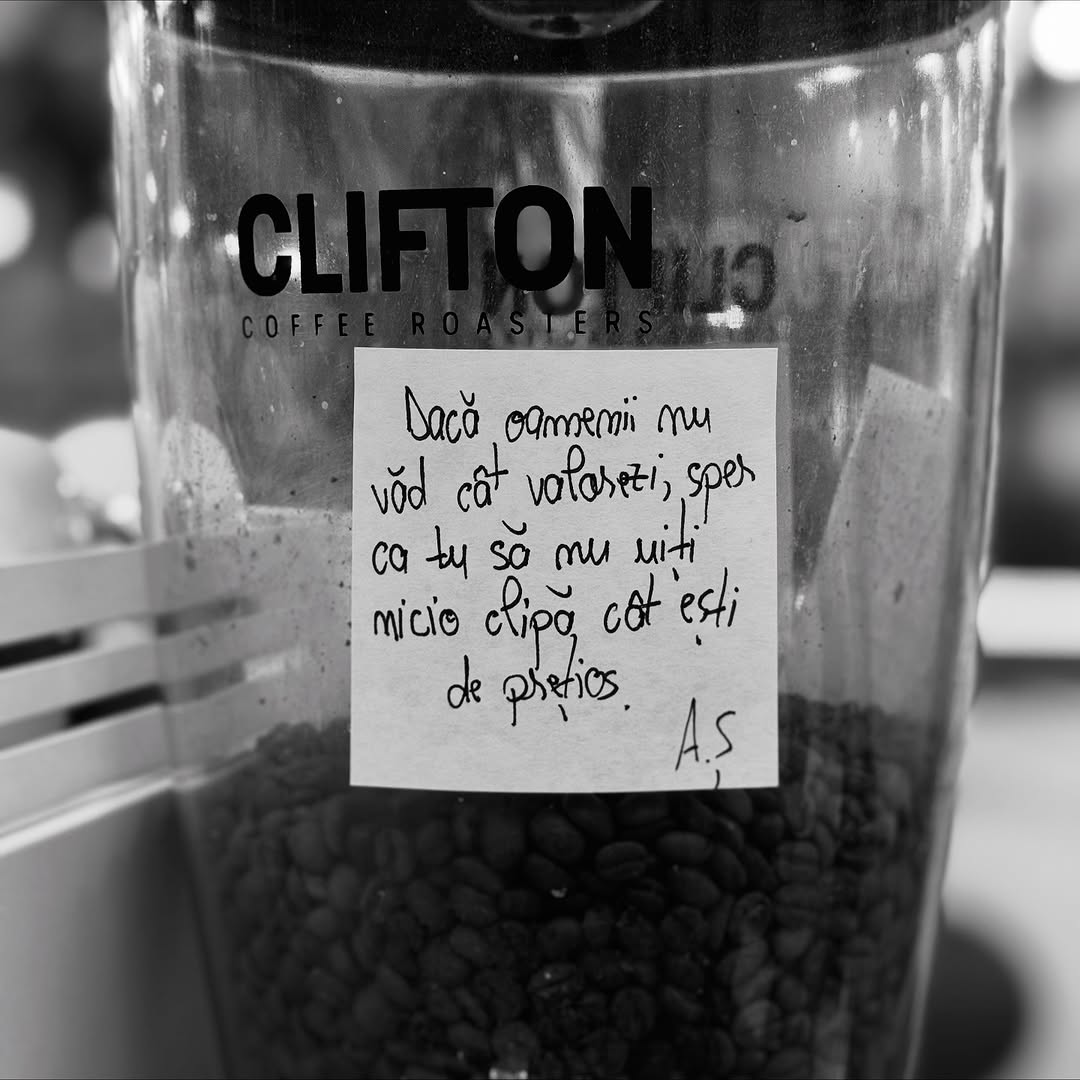 CLIFTON
COFFEE ROASTERS
Dacă oamenii nu
văd cât valorezi, sper
ca tu să nu uiți
nicio clipă cât ești
de prețios.
A.Ș